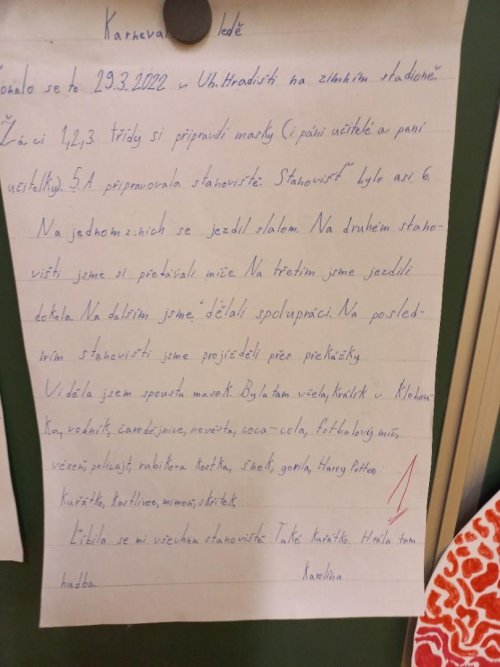 Karneval ledě
konalo se to 29.3.2022 v Uh. Hradišti na zimním stadioně.
Žáci 1,2,3. třídy si připravili masky (i páni učitelé a paní
učitelky). 5.A připravovala stanoviště. Stanovišť bylo asi 6.
Na jednom z nich se jezdil slalom. Na druhém stano-
višti jsme si předávali míče. Na třetím jsme jezdili
dokola. Na dalším jsme dělali spolupráci. Na posled-
ním stanovišti jsme projížděli přes překážky.
Viděla jsem spousta masek. Byla tam včela, králík v klobou-
ka, vodník, čarodějnice, nevěsta, coca-cola, fotbalový míč,
vězení, policajt, rubikova kostka, šnek, gorila, Harry Potter,
kuřátko, kostlivec, mimoni, skřítek.
Líbila se mi všechna stanoviště. Také kuřátko. Hrála tam
hudba Karolína
1